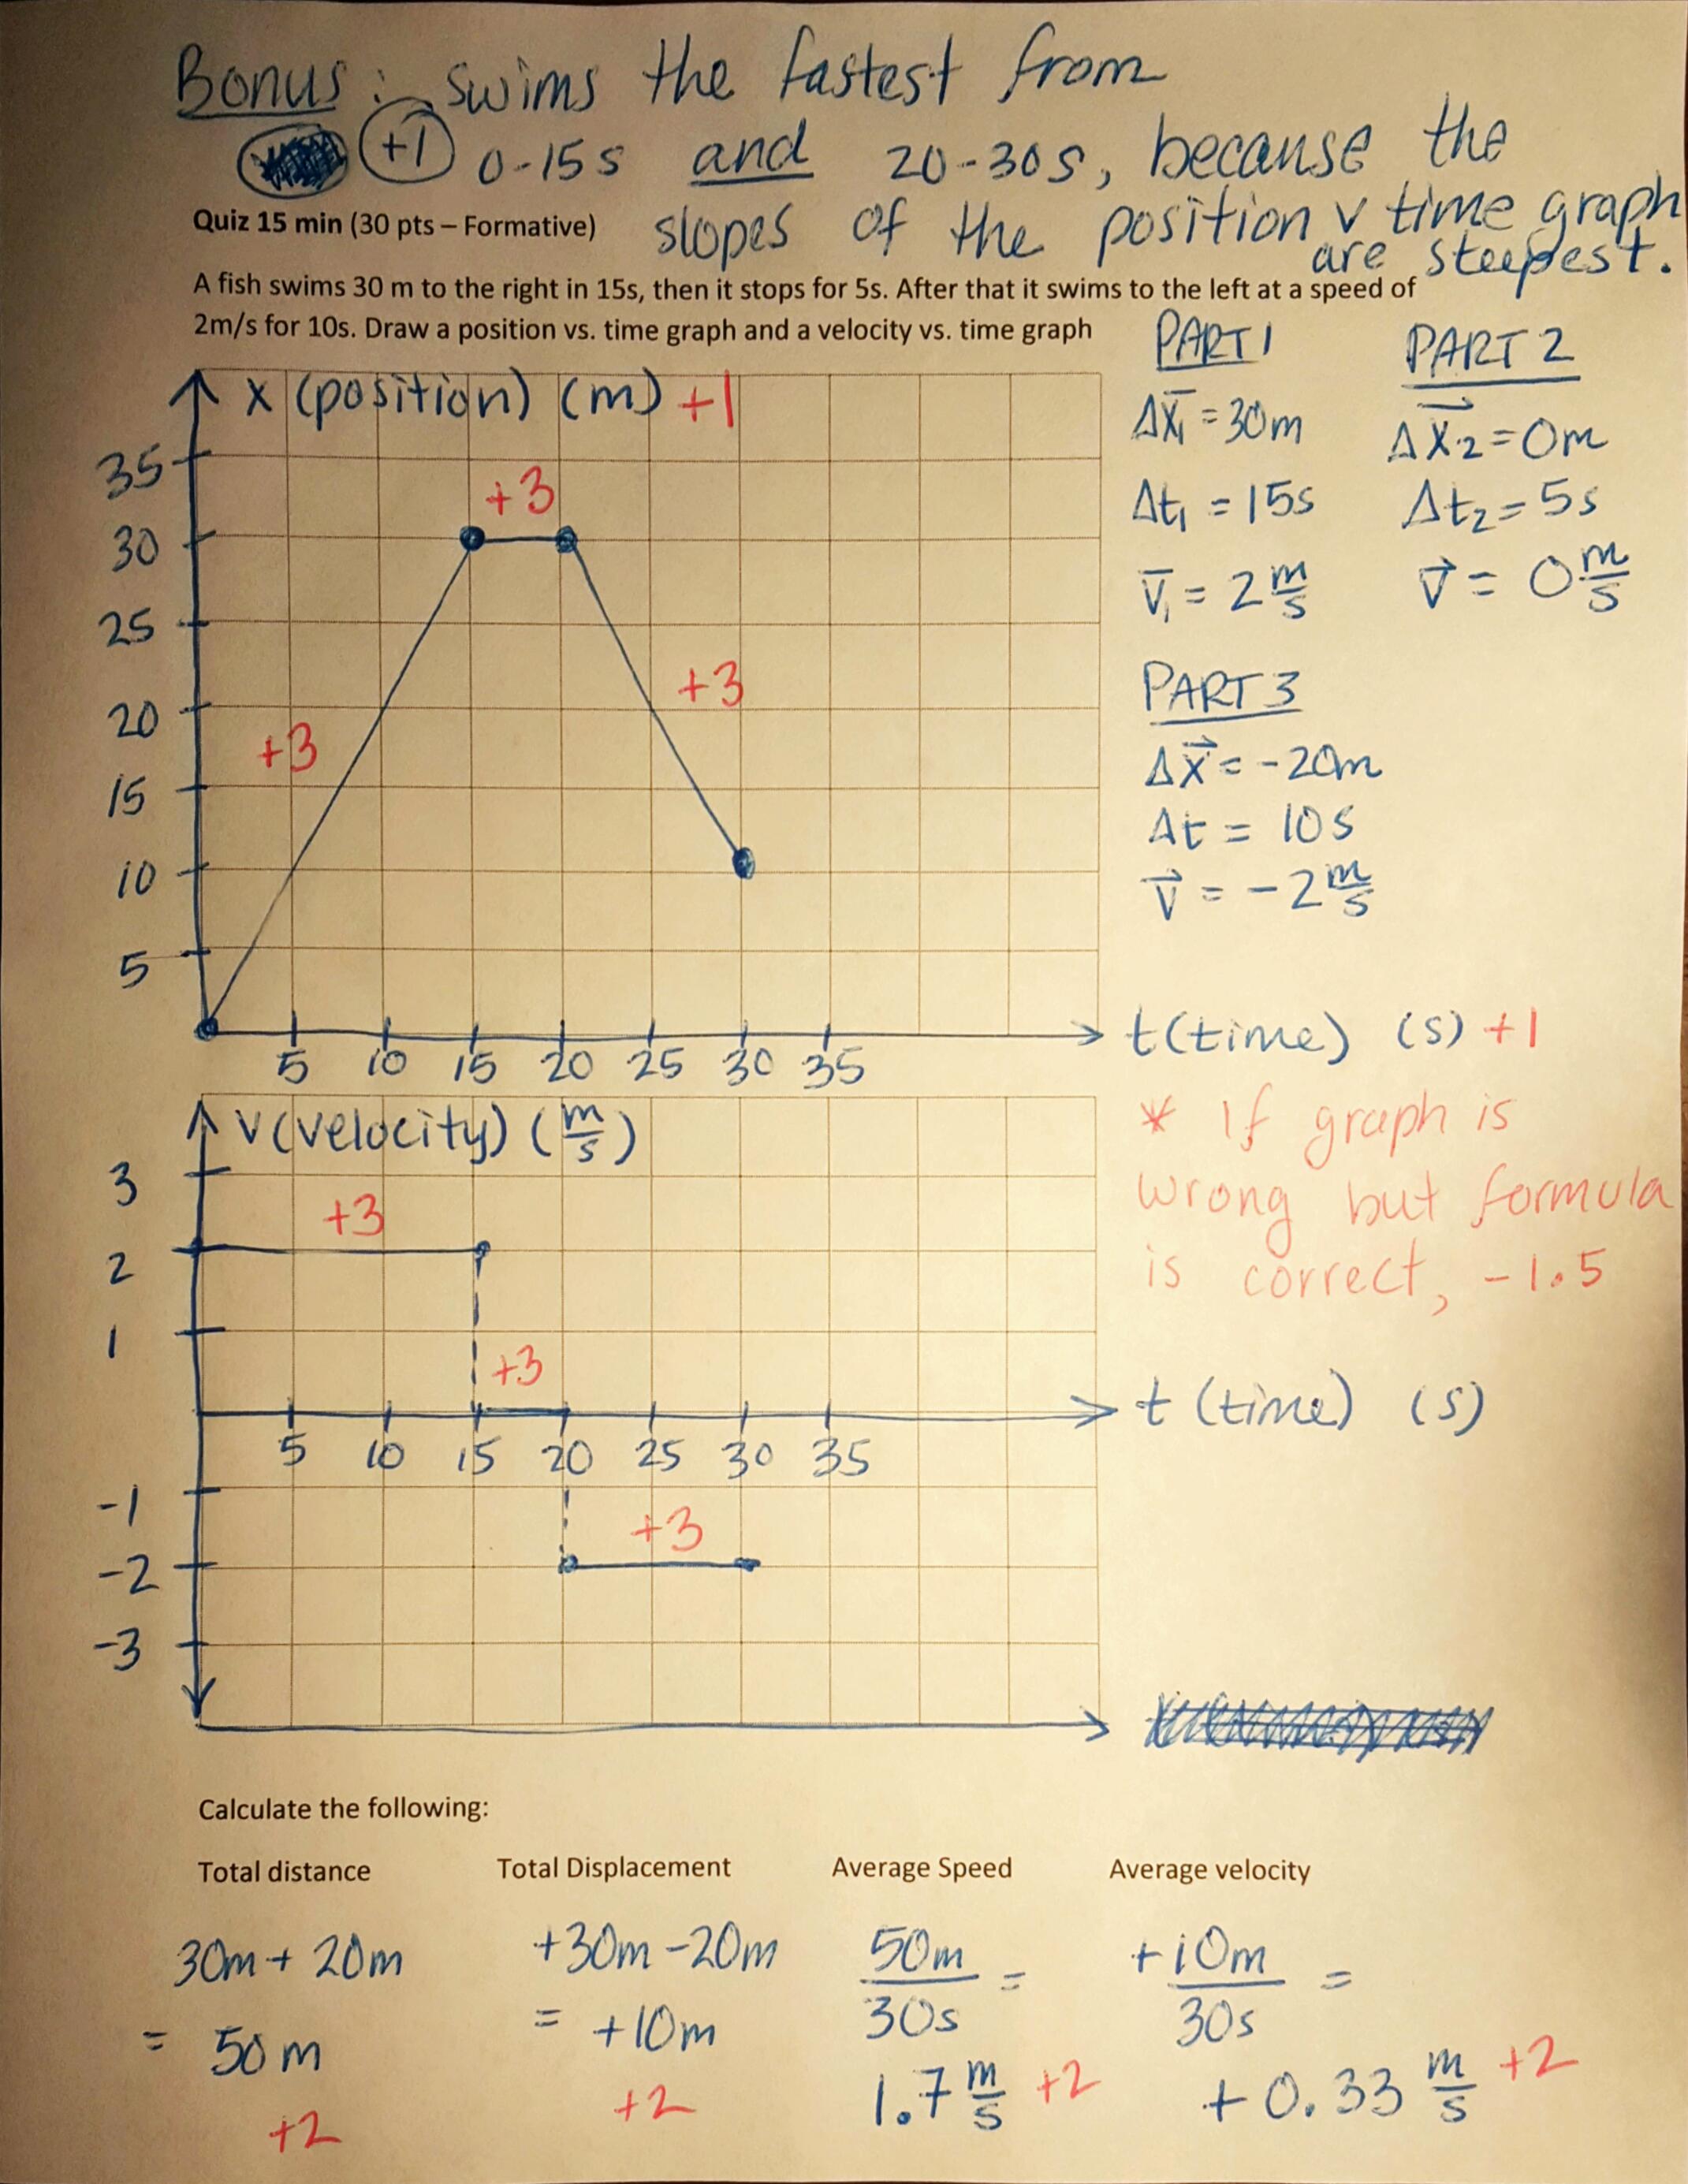 Bonus: swims the fastest from
+1 0-15s and 20-30s, because the
Quiz 15 min (30 pts – Formative)
slopes of the position v time graph
are steepest.
A fish swims 30 m to the right in 15s, then it stops for 5s. After that it swims to the left at a speed of
2m/s for 10s. Draw a position vs. time graph and a velocity vs. time graph
PART 1
Δx₁ = 30m
Δt₁ = 15s
v₁ = 2 m/s
PART 2
Δx₂ = 0m
Δt₂ = 5s
v = 0 m/s
PART 3
Δx = -20m
Δt = 10s
v = -2 m/s
x (position) (m) +1
35
30
25
20
15
10
5
+3
+3
+3
5 10 15 20 25 30 35
t (time) (s) +1
* If graph is
wrong but formula
is correct, -1.5
v (velocity) (m/s)
3
2
1
-1
-2
-3
+3
+3
+3
5 10 15 20 25 30 35
t (time) (s)
Calculate the following:
Total distance
30m + 20m
= 50m
+2
Total Displacement
+30m - 20m
= +10m
+2
Average Speed
50m/30s =
1.7 m/s +2
Average velocity
+10m/30s =
+0.33 m/s +2